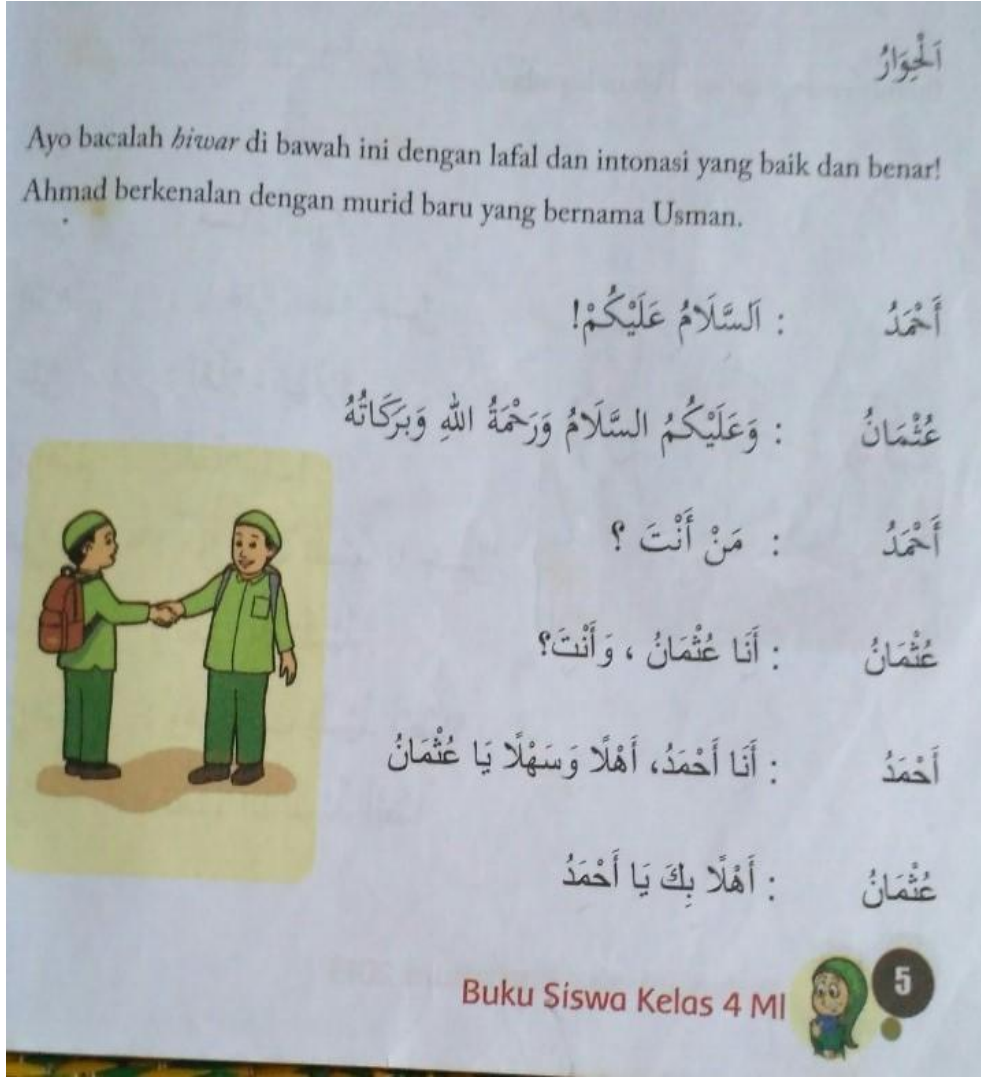 اَلْحِوَارُ
Ayo bacalah hiwar di bawah ini dengan lafal dan intonasi yang baik dan benar!
Ahmad berkenalan dengan murid baru yang bernama Usman.
أَحْمَدُ : اَلسَّلَامُ عَلَيْكُمْ!
عُثْمَانُ : وَعَلَيْكُمُ السَّلَامُ وَرَحْمَةُ اللهِ وَبَرَكَاتُهُ
أَحْمَدُ : مَنْ أَنْتَ ؟
عُثْمَانُ : أَنَا عُثْمَانُ ، وَأَنْتَ؟
أَحْمَدُ : أَنَا أَحْمَدُ، أَهْلًا وَسَهْلًا يَا عُثْمَانُ
عُثْمَانُ : أَهْلًا بِكَ يَا أَحْمَدُ
Buku Siswa Kelas 4 MI
5